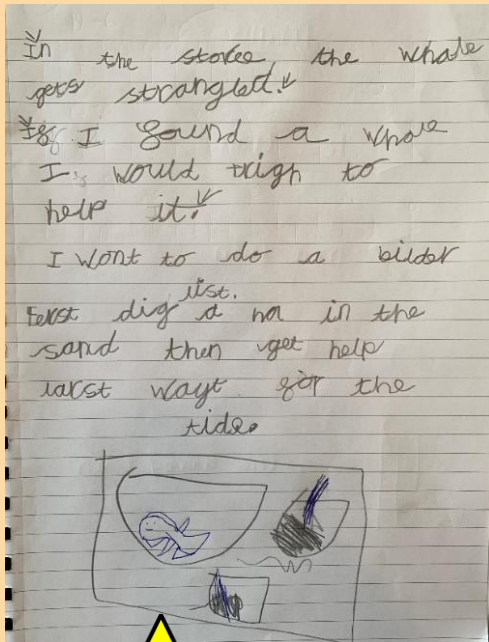 In the storee, the whale
gets strangled.
If I found a whale
I would trigh to
help it.
I wont to do a bilder
list.
Ferst dig a hol in the
sand then get help
larst wayt for the
tide.